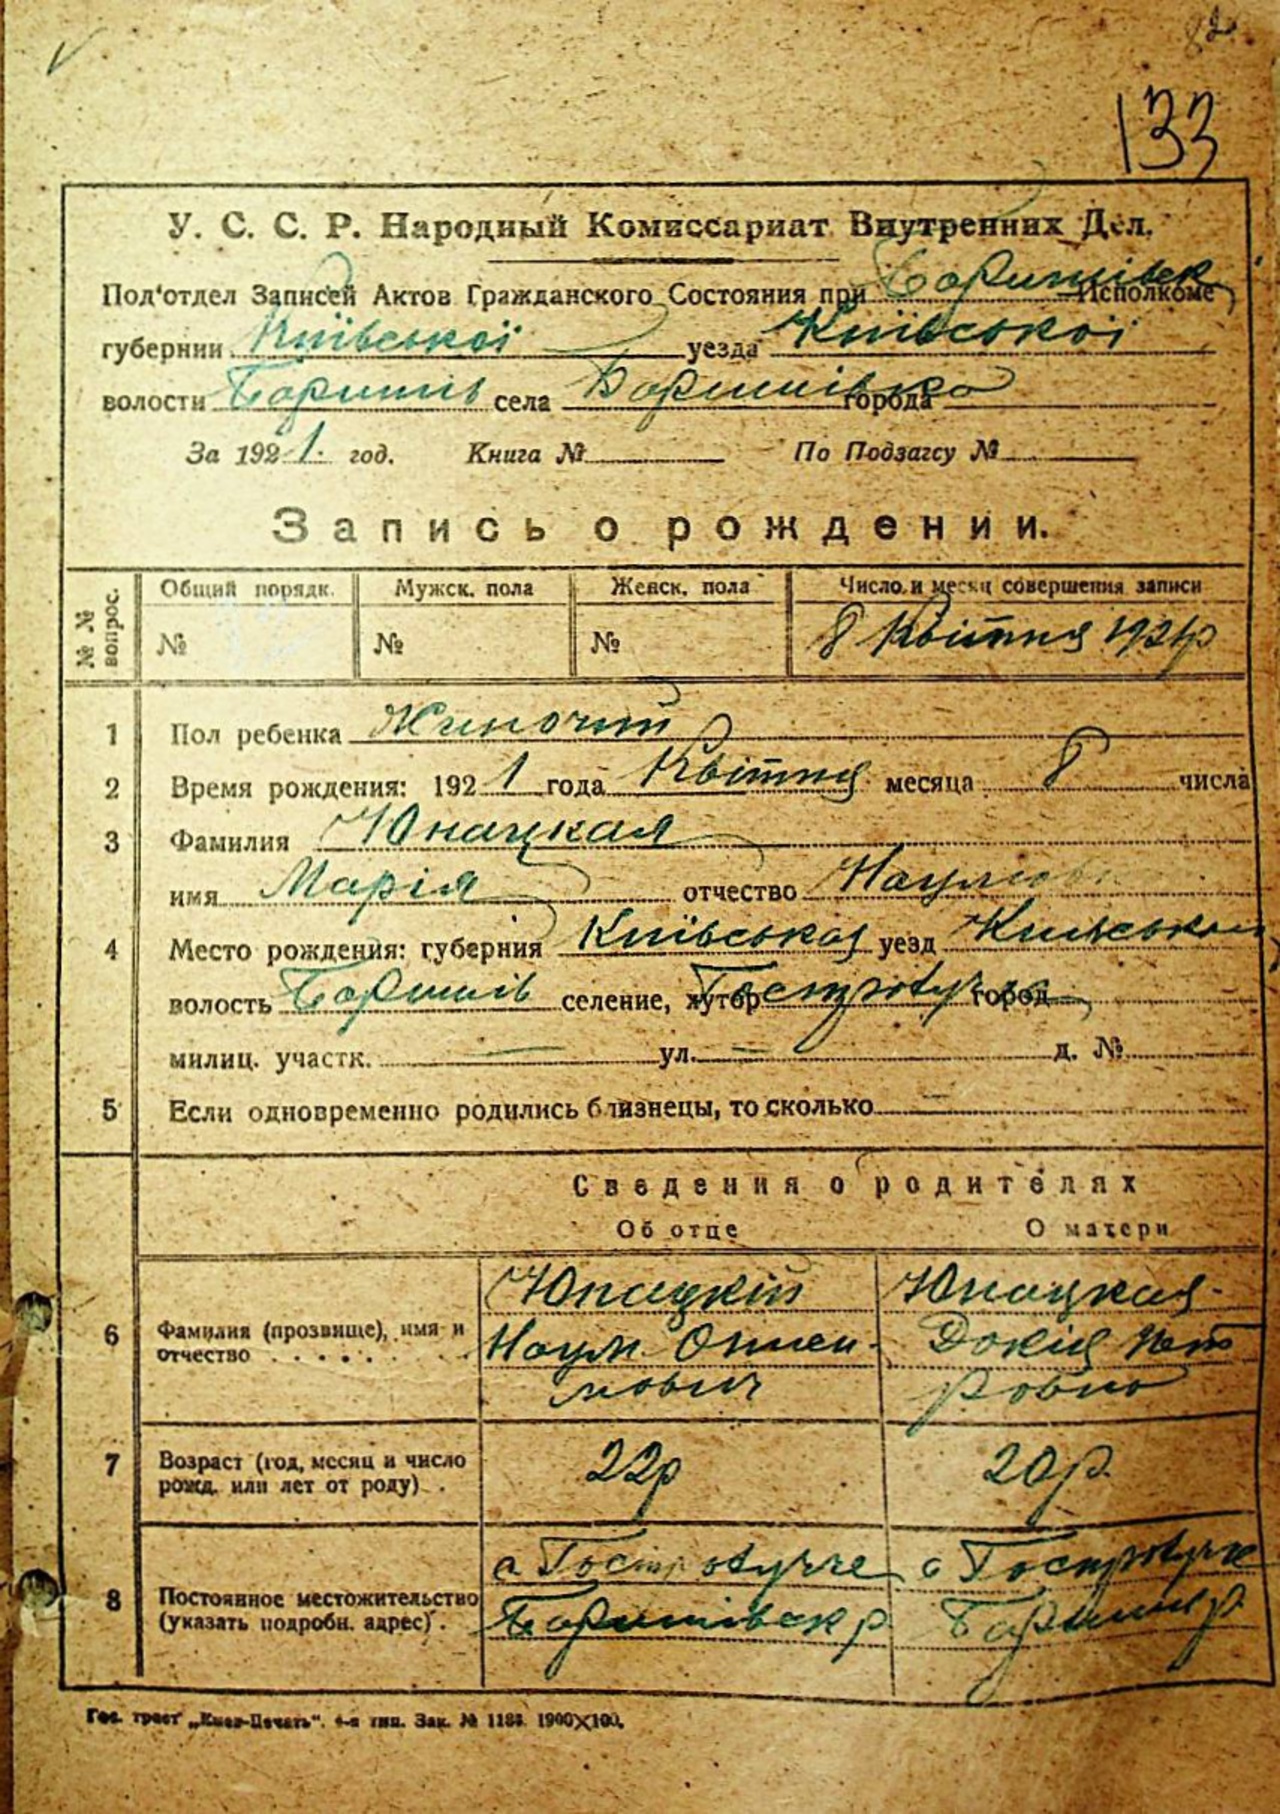 82
133
У. С. С. Р. Народный Комиссариат Внутренних Дел.
Под'отдел Записей Актов Гражданского Состояния при Баришівск Исполкоме
губернии Київської уезда Київської
волости Баришів села Баришівка города
За 1921. год. Книга № По Подзагсу №
Запись о рождении.
№ № вопрос. Общий порядк. Мужск. пола Женск. пола Число и месяц совершения записи
№ № № 8 Квітня 1921р
1 Пол ребенка Жиночий
2 Время рождения: 1921 года Квітня месяца 8 числа
3 Фамилия Юнацкая
имя Марія отчество Наумовн
4 Место рождения: губерния Київська уезд
волость Баришів селение, хутор город
милиц. участк. — ул. — д. №
5 Если одновременно родились близнецы, то сколько —
Сведения о родителях
Об отце О матери
6 Фамилия (прозвище), имя и отчество . . . . . . .
Юнацкій Юнацкая
Наум Докія Пет
мович ровна
7 Возраст (год, месяц и число рожд. или лет от роду) . . 22р 20р.
8 Постоянное местожительство (указать подробн. адрес) .
с Гостролуччє с Гостролуччє
Баришівск р Баришів р.
Гос. трест „Киев-Печать“. 4-я тип. Зак. № 1188. 1900×100.